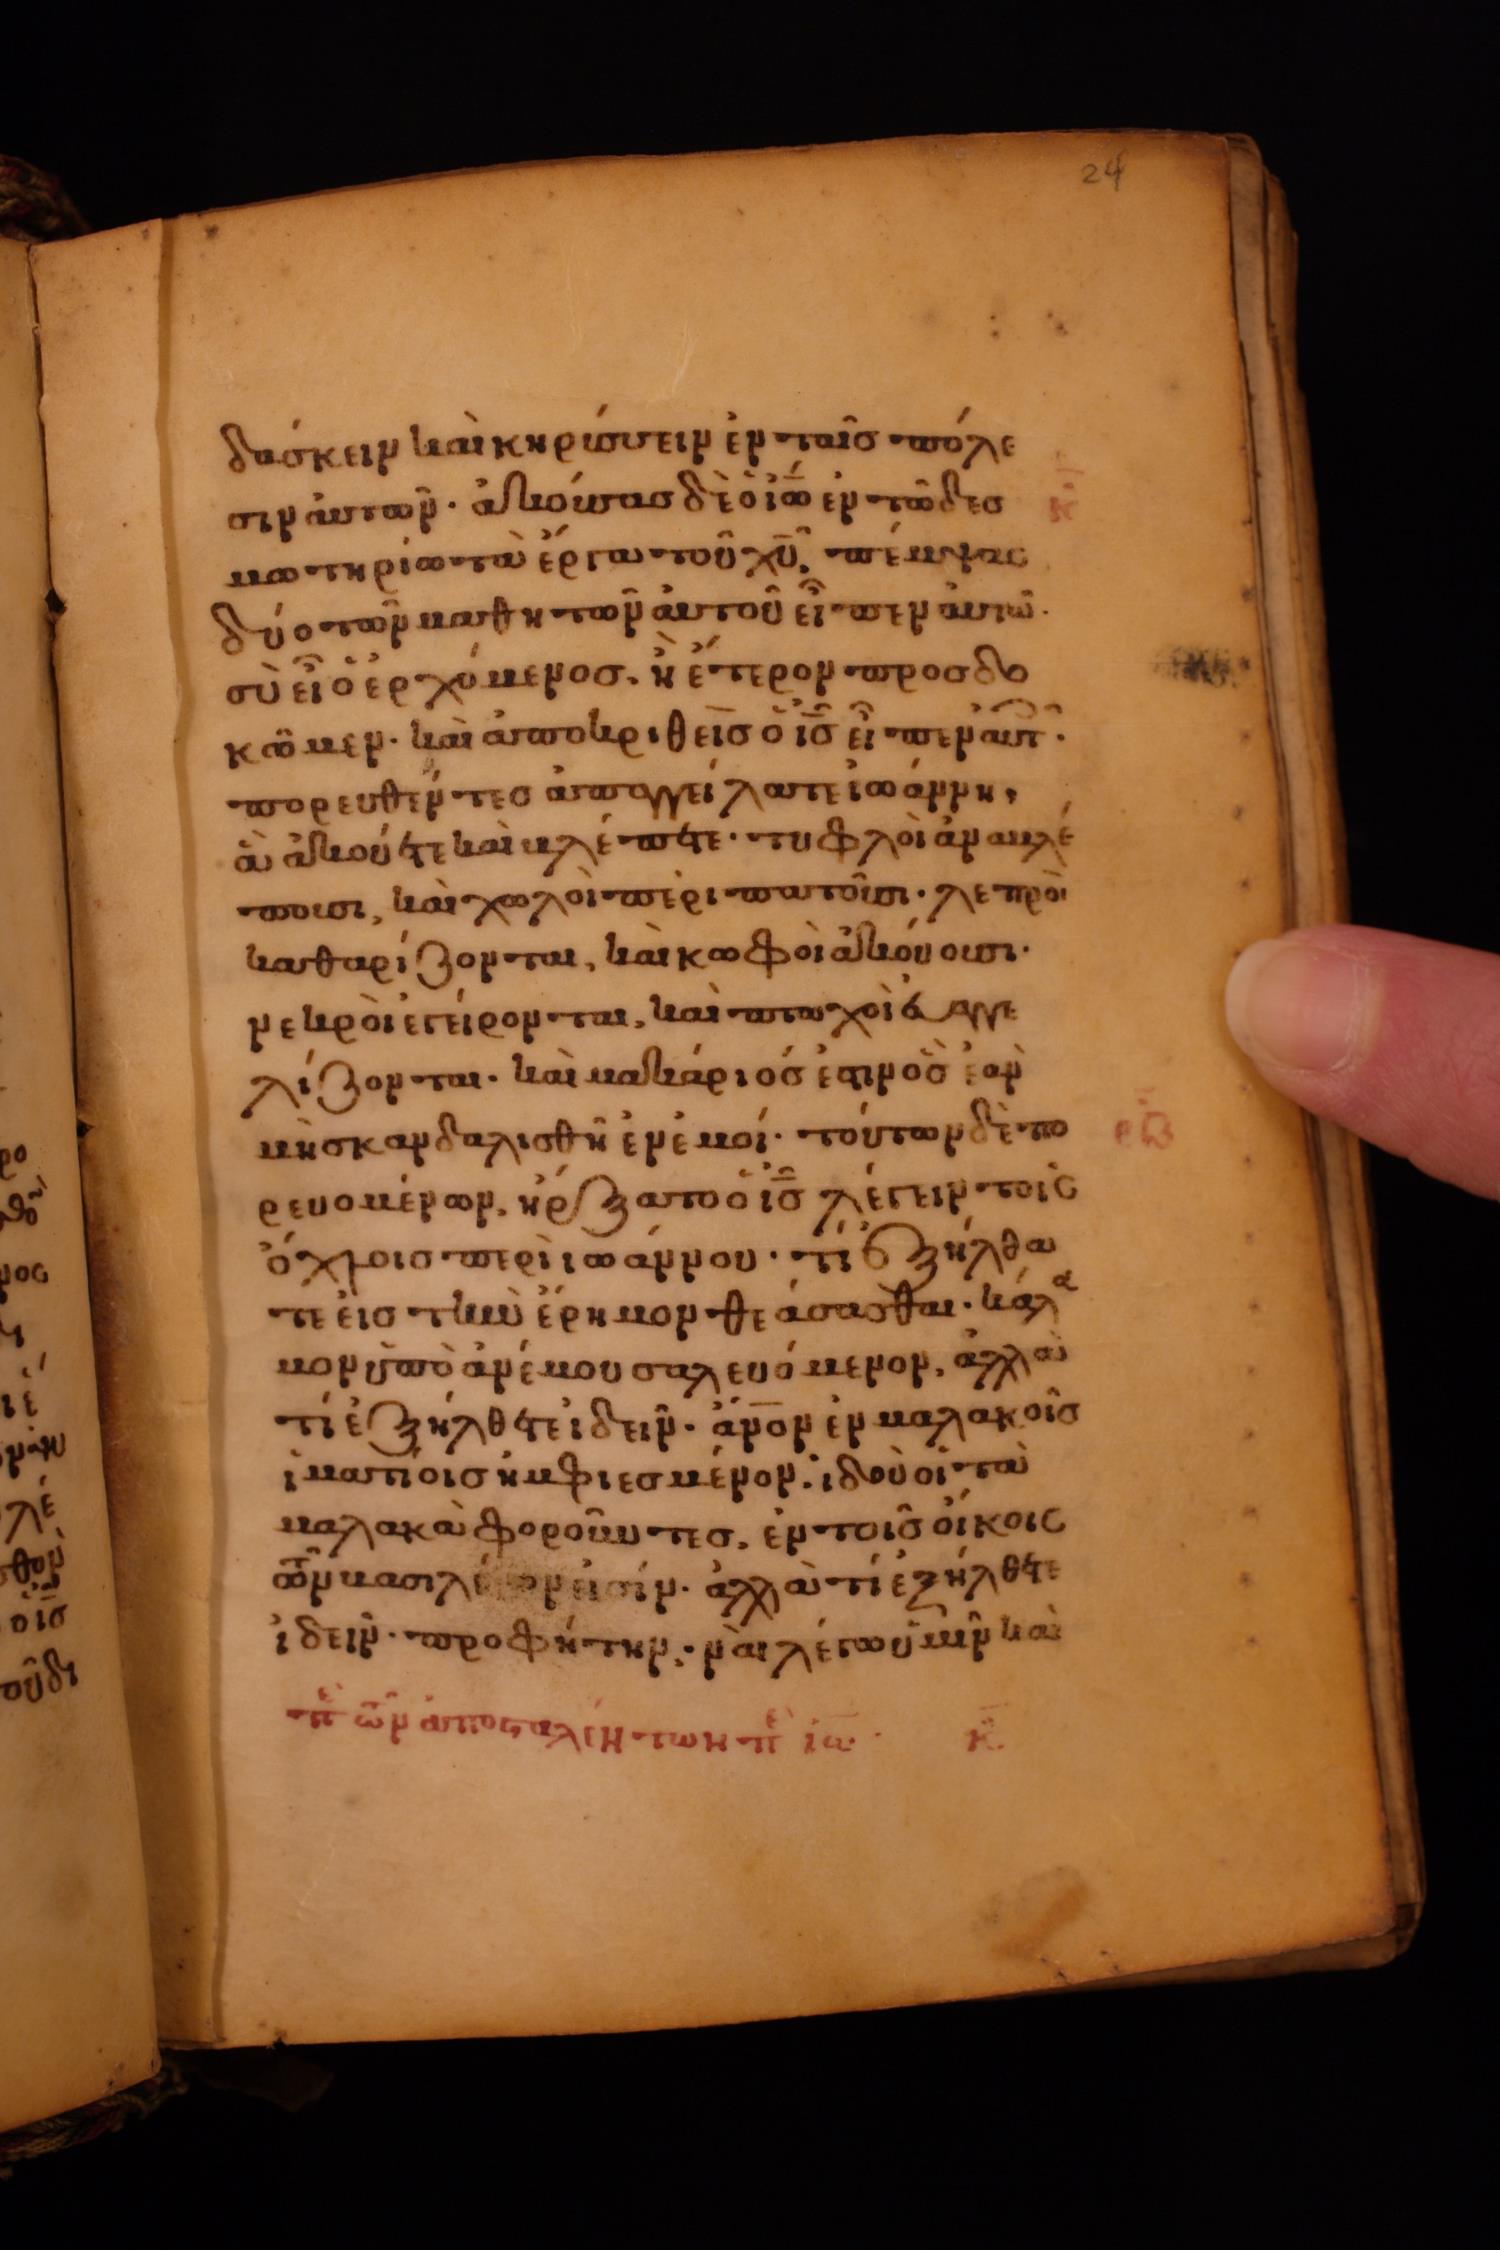 24
δάσκειν καὶ κηρύσσειν ἐν ταῖς πόλε
σιν ἀυτῶν· ἀκούσας δὲ ὁ ἰω̅ ἐν τῶ δεσ
μωτηρίω τὰ ἔργα τοῦ χυ̅, πέμψας
δύο τῶν μαθητῶν ἀυτοῦ εἶπεν ἀυτῶ·
σὺ εἶ ὁ ἐρχόμενος, ἢ ἕτερον προσδο
κῶμεν· καὶ ἀποκριθεὶς ὁ ις̅ εἶπεν ἀυτ·
πορευθέντες ἀπαγγείλατε ἰωάννη,
ἃ ἀκούετε καὶ βλέπετε· τυφλοὶ ἀναβλέ
πουσι, καὶ χωλοὶ περιπατοῦσι· λεπροὶ
καθαρίζονται, καὶ κωφοὶ ἀκούουσι·
νεκροὶ ἐγείρονται, καὶ πτωχοὶ ἐυαγγε
λίζονται· καὶ μακάριός ἐστιν ὃς ἐὰν
μὴ σκανδαλισθῆ ἐν ἐμοί· τούτων δὲ πο
ρευομένων, ἤρξατο ὁ ις̅ λέγειν τοῖς
ὄχλοις περὶ ἰωάννου· τί ἐξήλθα
τε εἰς τὴν ἔρημον θεάσασθαι· κάλα
μον ὑπὸ ἀνέμου σαλευόμενον, ἀλλὰ
τί ἐξήλθετε ἰδεῖν· ἄνο̅ν ἐν μαλακοῖς
ἱματίοις ἠμφιεσμένον· ἰδοὺ οἱ τὰ
μαλακὰ φοροῦντες, ἐν τοῖς οἴκοις
τῶν βασιλέων εἰσίν· ἀλλὰ τί ἐξήλθετε
ἰδεῖν· προφήτην, ναὶ λέγω ὑμῖν καὶ
πε̅ τῶν ἀποσταλέντων π ἰω̅· κ̅
κ̅